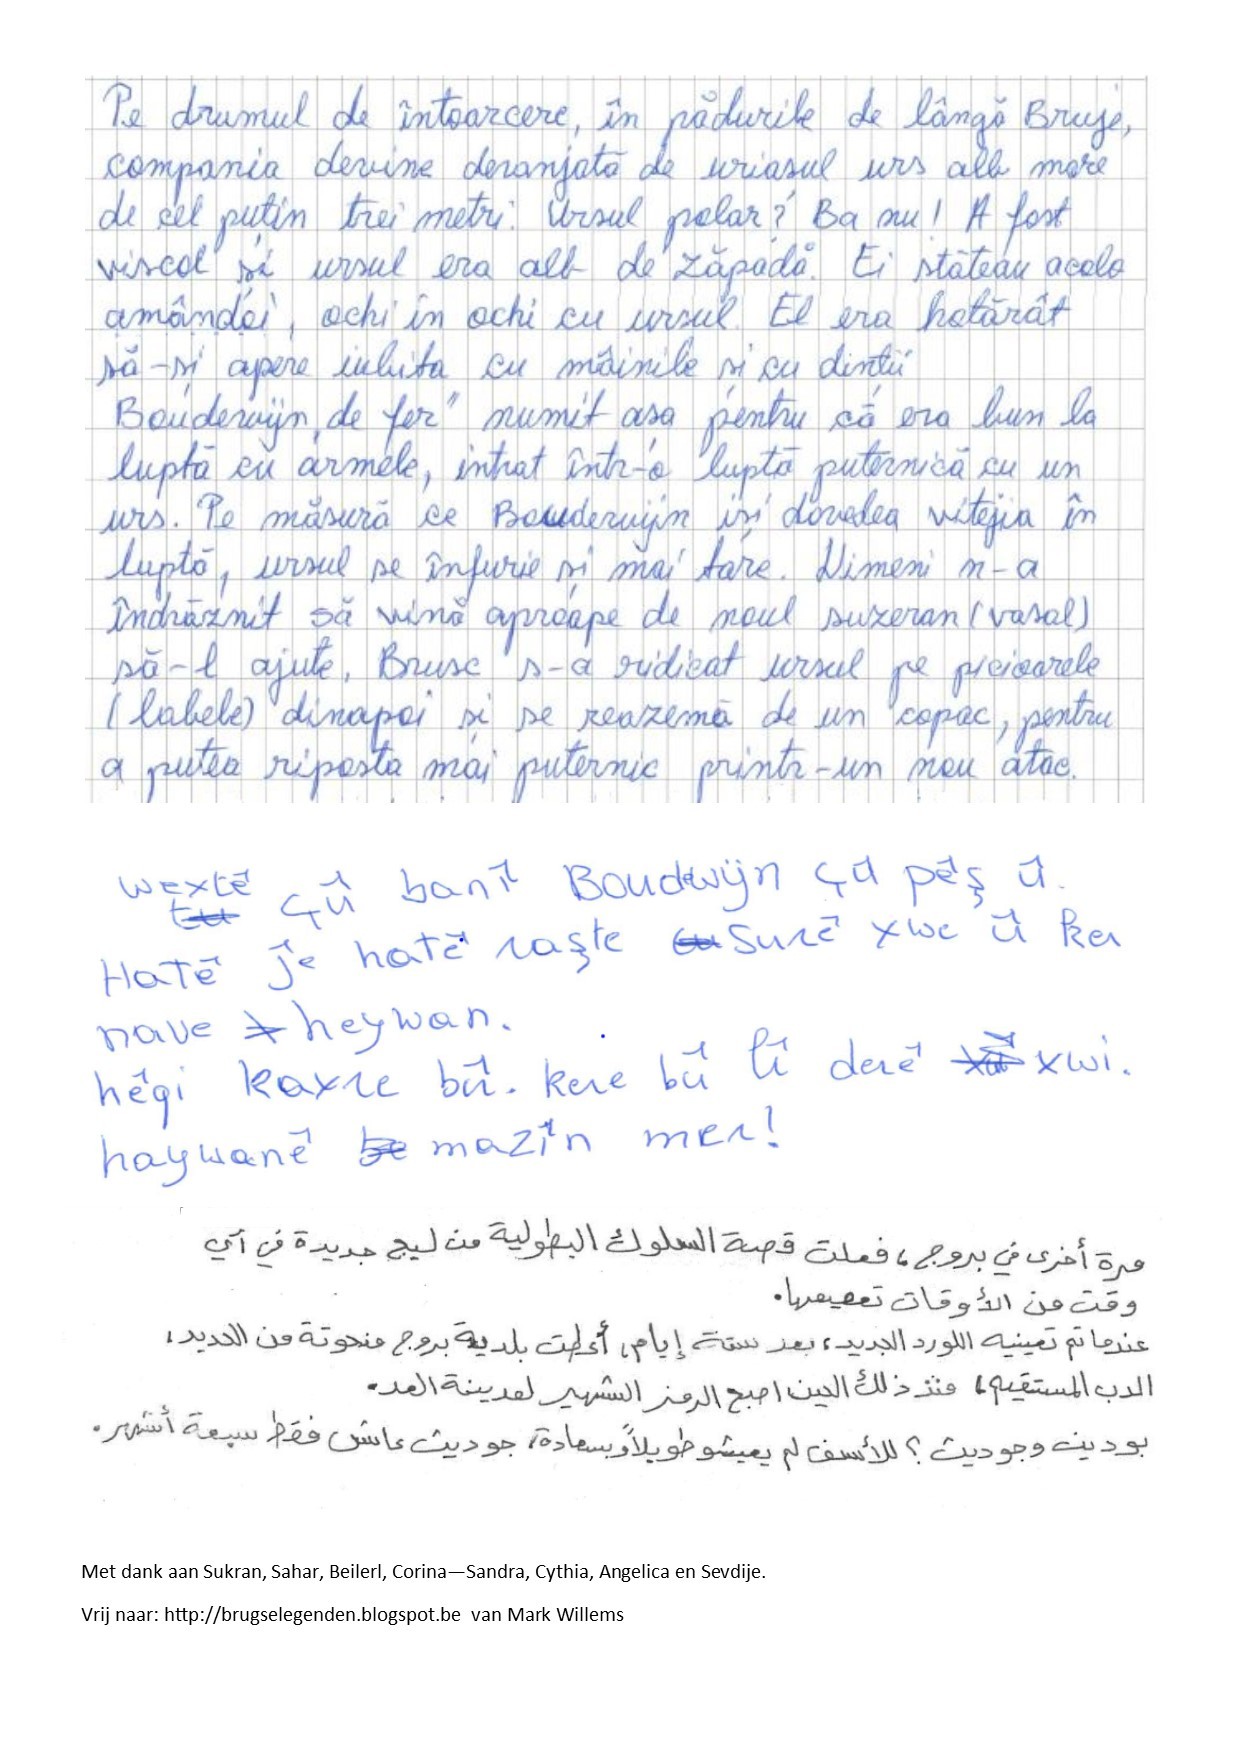 Pe drumul de întoarcere, în pădurile de lângă Bruje,
compania devine deranjată de uriasul urs alb mare
de cel puțin trei metri. Ursul polar? Ba nu! A fost
viscol și ursul era alb de zăpadă. Ei stăteau acolo
amândoi, ochi în ochi cu ursul. El era hotărât
să-și apere iubita cu mâinile și cu dinții
Bouderwijn „de fer" numit asa pentru că era bun la
luptă cu armele, intrat într-o luptă puternică cu un
urs. Pe măsură ce Bouderwijn iși dovedea vitejia în
luptă, ursul se înfurie și mai tare. Nimeni n-a
îndrăznit să vină aproape de noul suzeran (vasal)
să-l ajute. Brusc s-a ridicat ursul pe picioarele
(labele) dinapoi și se reazemă de un copac, pentru
a putea riposta mai puternic printr-un nou atac.
wextê çû banî Boudewijn çû pêş û.
Hatê je hatê raşte surê xwe û ker
nave heywan.
hêqi kaxre bû. kere bû lî derê xwi.
haywanê mazîn mer!
مرة أخرى في بروج، فعلت قصة السلوك البطولية من ليج جديدة في آي
وقت من الأوقات تعميمها.
عندما تم تعيينه اللورد الجديد، بعد ستة إيام، أعطت بلدية بروج منحوتة من الحديد،
الدب المستقيم، منذ ذلك الحين اصبح الرمز الشهير لمدينة المد.
بودين وجوديث؟ للأسف لم يعيشو طويلاً وبسعادة، جوديث عاش فقط سبعة أشهر.
Met dank aan Sukran, Sahar, Beilerl, Corina—Sandra, Cythia, Angelica en Sevdije.
Vrij naar: http://brugselegenden.blogspot.be van Mark Willems